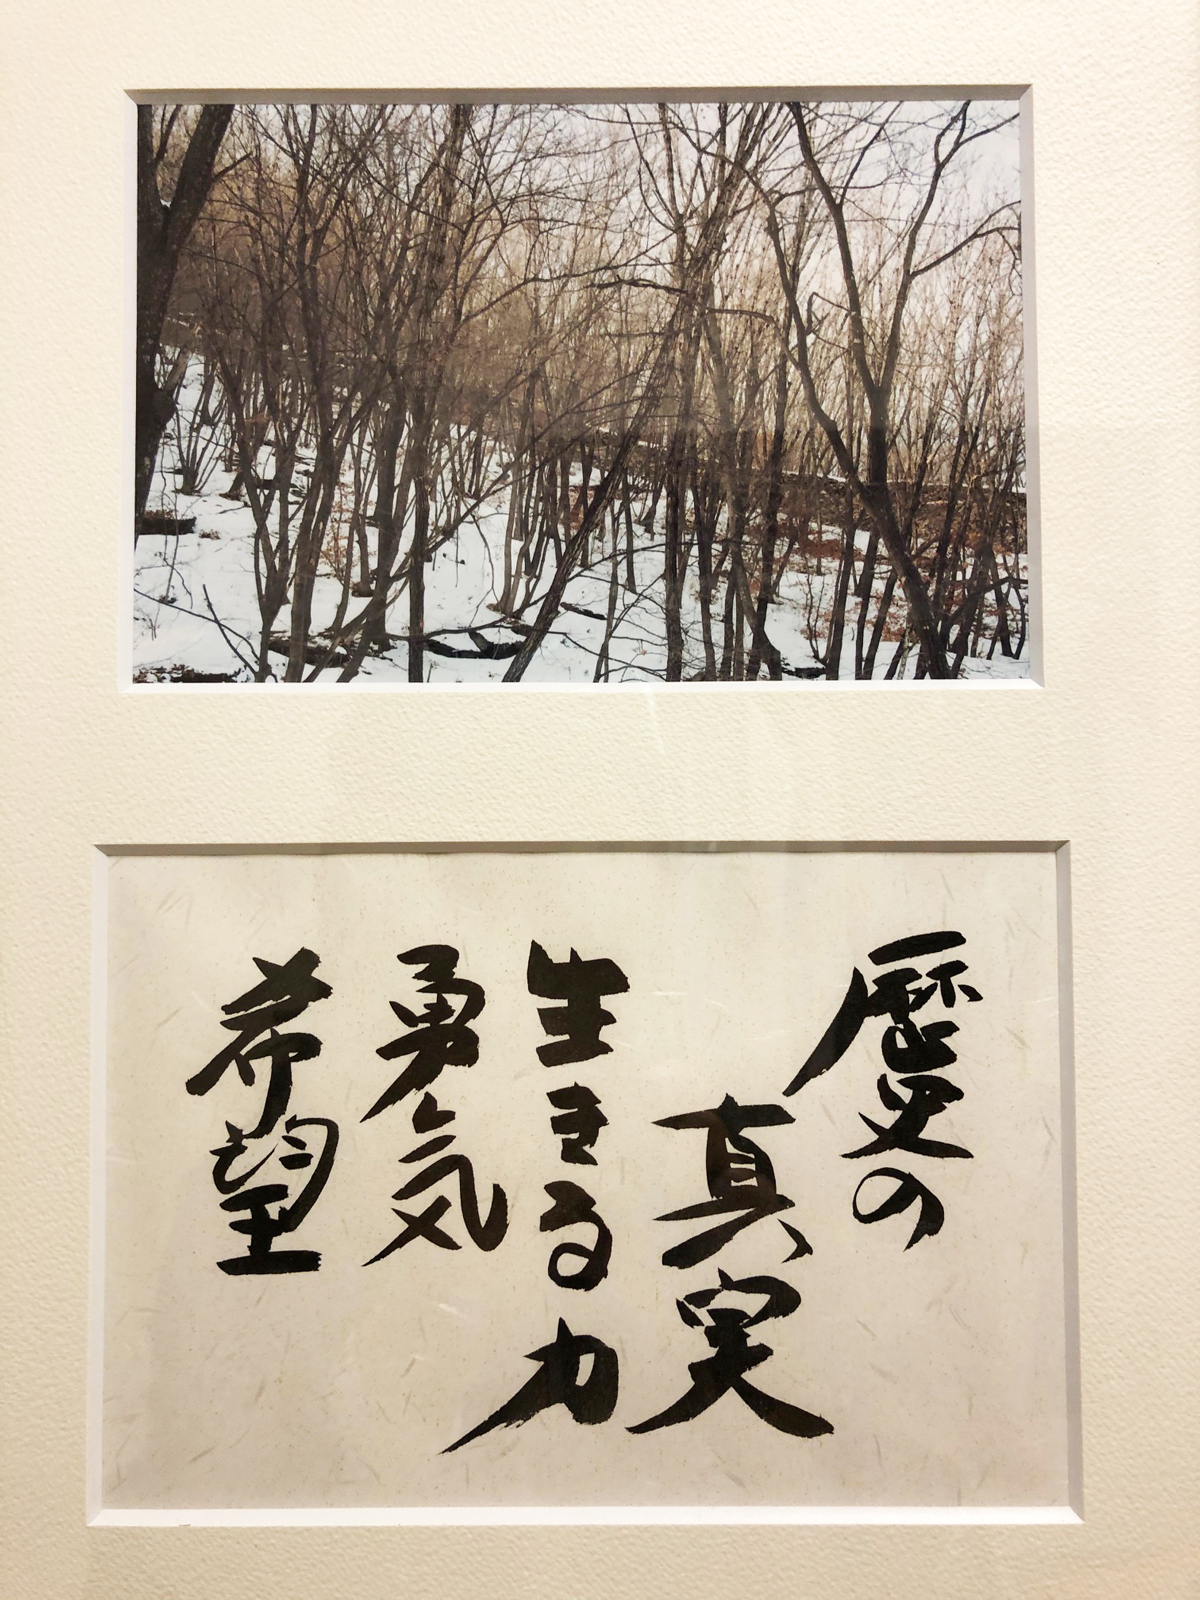 歴史の
真実
生きる力
勇気
希望